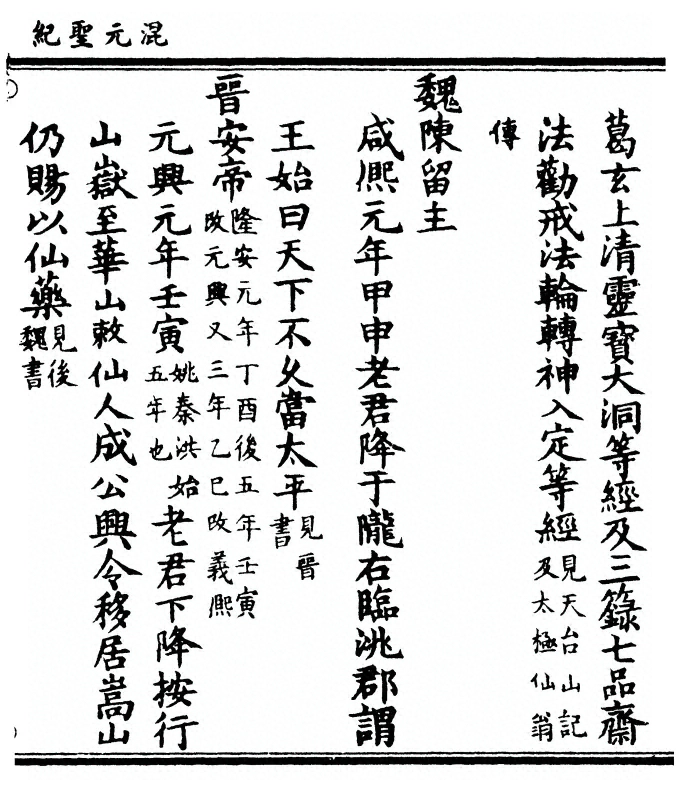 混元聖紀
葛玄上清靈寶大洞等經及三籙七品齋
法勸戒法輪轉神入定等經見天台山記及太極仙翁
傳
魏陳留主
咸熈元年甲申老君降于隴右臨洮郡謂
王始曰天下不乆當太平見晉書
晉安帝隆安元年丁酉後五年壬寅改元興又三年乙巳改義熈
元興元年壬寅姚秦洪始五年也老君下降按行
山嶽至華山敕仙人成公興令移居嵩山
仍賜以仙藥見後魏書